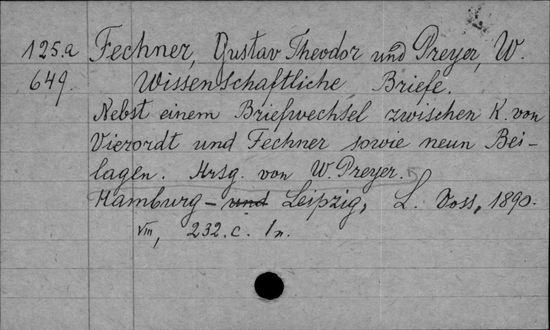 125.a Fechner, Gustav Theodor und Preyer, W.
649. Wissenschaftliche Briefe.
Nebst einem Briefwechsel zwischen K. von
Vierordt und Fechner sowie neun Bei-
lagen. Hrsg. von W. Preyer.
Hamburg - und Leipzig, L. Voss, 1890.
VIII, 232. c. 1 n.